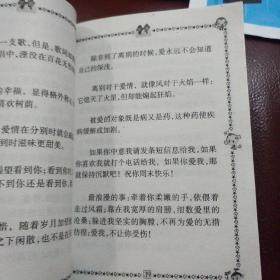 一支歌,但是,歌词
唱中,湮没在百花
的幸福,显得格外
喜欢柯蔚。
爱情在分别时就会
到时滋味更甜美。
望看到你;看不到
不到你还是看到你
悟,随着岁月如
之下闲散,也不是
除非到了离别的时候,爱永远不会知道
自己的深浅。
离别对于爱情,就像风对于火焰一样:
它熄灭了火星,但却能煽起狂焰。
被爱的对象既是病又是药,这种药使疾
病缓解或加剧。
如果你中意我请发条短信息给我,如果
你喜欢我就打个电话给我,如果你爱我,那
就保持沉默吧!祝你周末快乐!
最浪漫的事:牵着你柔嫩的手,依偎着
走过风霜;靠在我宽厚的肩膀,细数爱里的
沧桑;躲进我坚实的胸膛,不再为爱的无猜
彷徨;爱我,不让你受伤!
79